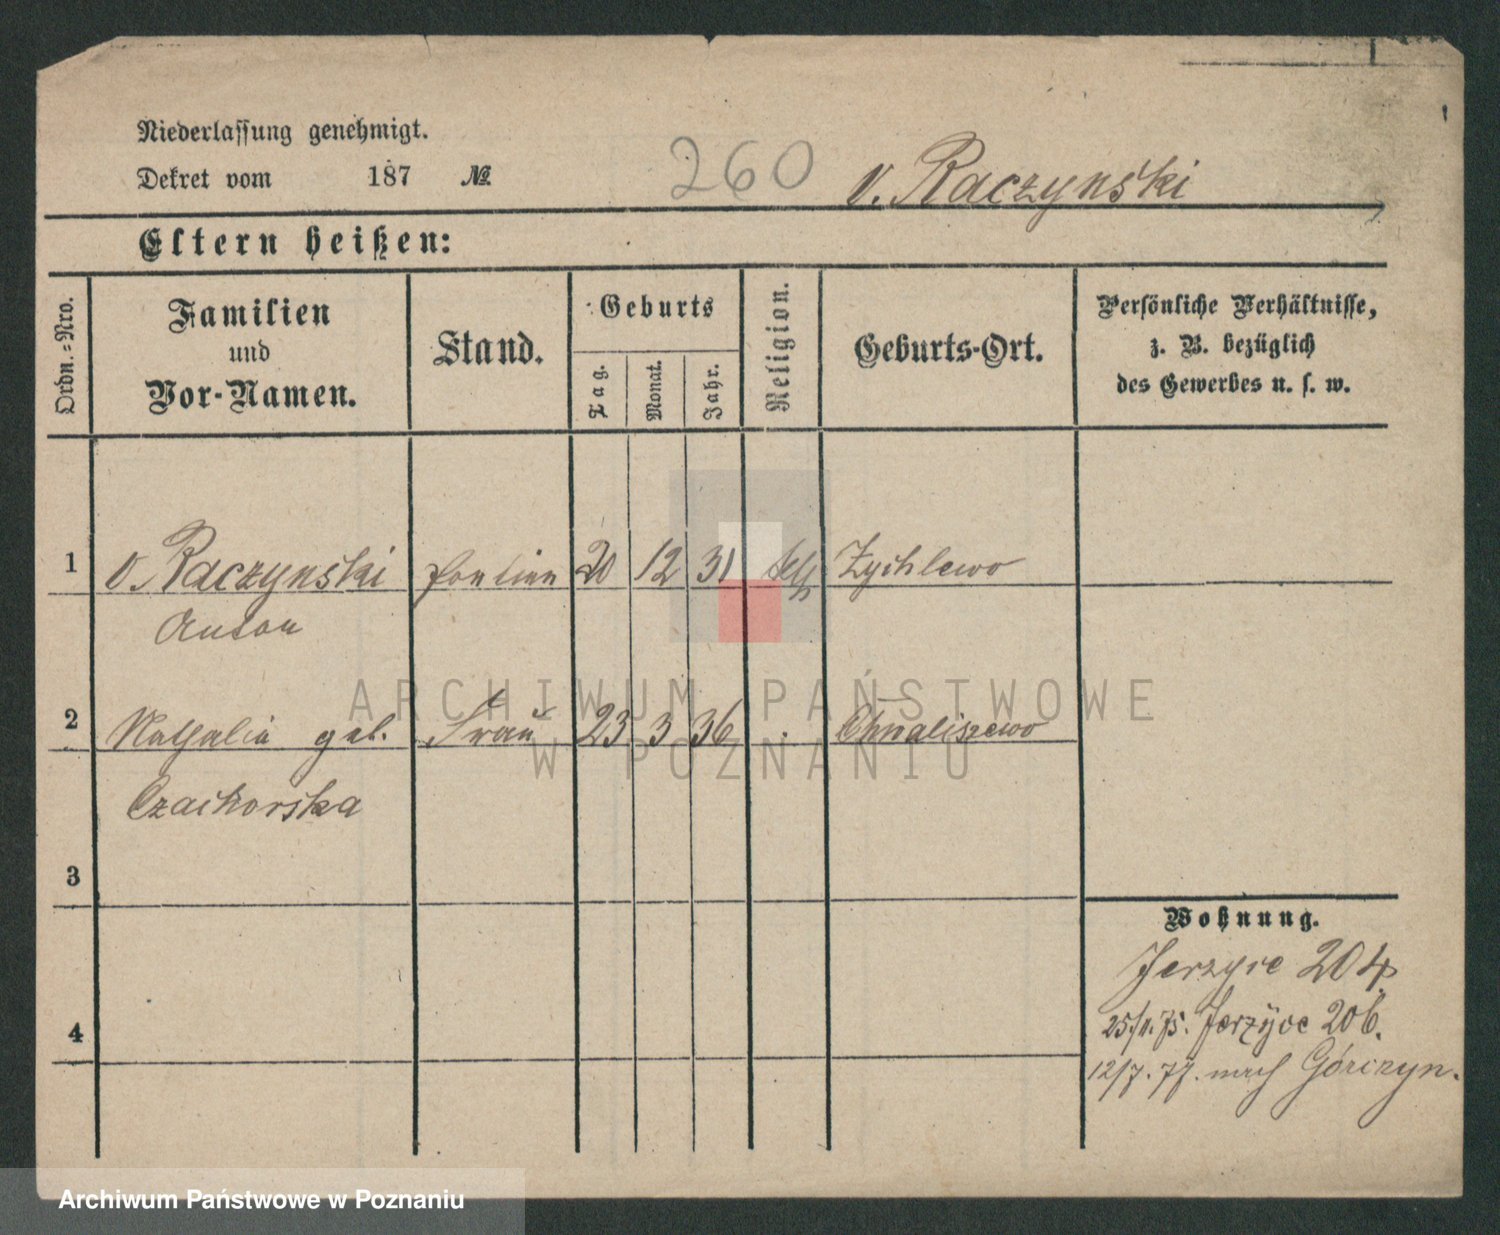 Niederlassung genehmigt.
Dekret vom 187 №.
260 v. Raczynski
Eltern heißen:
Ordn.-Nro.
Familien
und
Vor-Namen.
Stand.
Geburts
Tag.
Monat.
Jahr.
Religion.
Geburts-Ort.
Persönliche Verhältnisse,
z. B. bezüglich
des Gewerbes u. s. w.
1 v. Raczynski 20 12 31 Zychlewo
Anton
2 Nathalia geb. Frau 23 3 36 Chwaliszewo
Czachorska
3
4
Wohnung.
Jerzyce 204
25/11.75. Jerzyce 206.
12/7.77. nach Górczyn.
ARCHIWUM PAŃSTWOWE
W POZNANIU
Archiwum Państwowe w Poznaniu